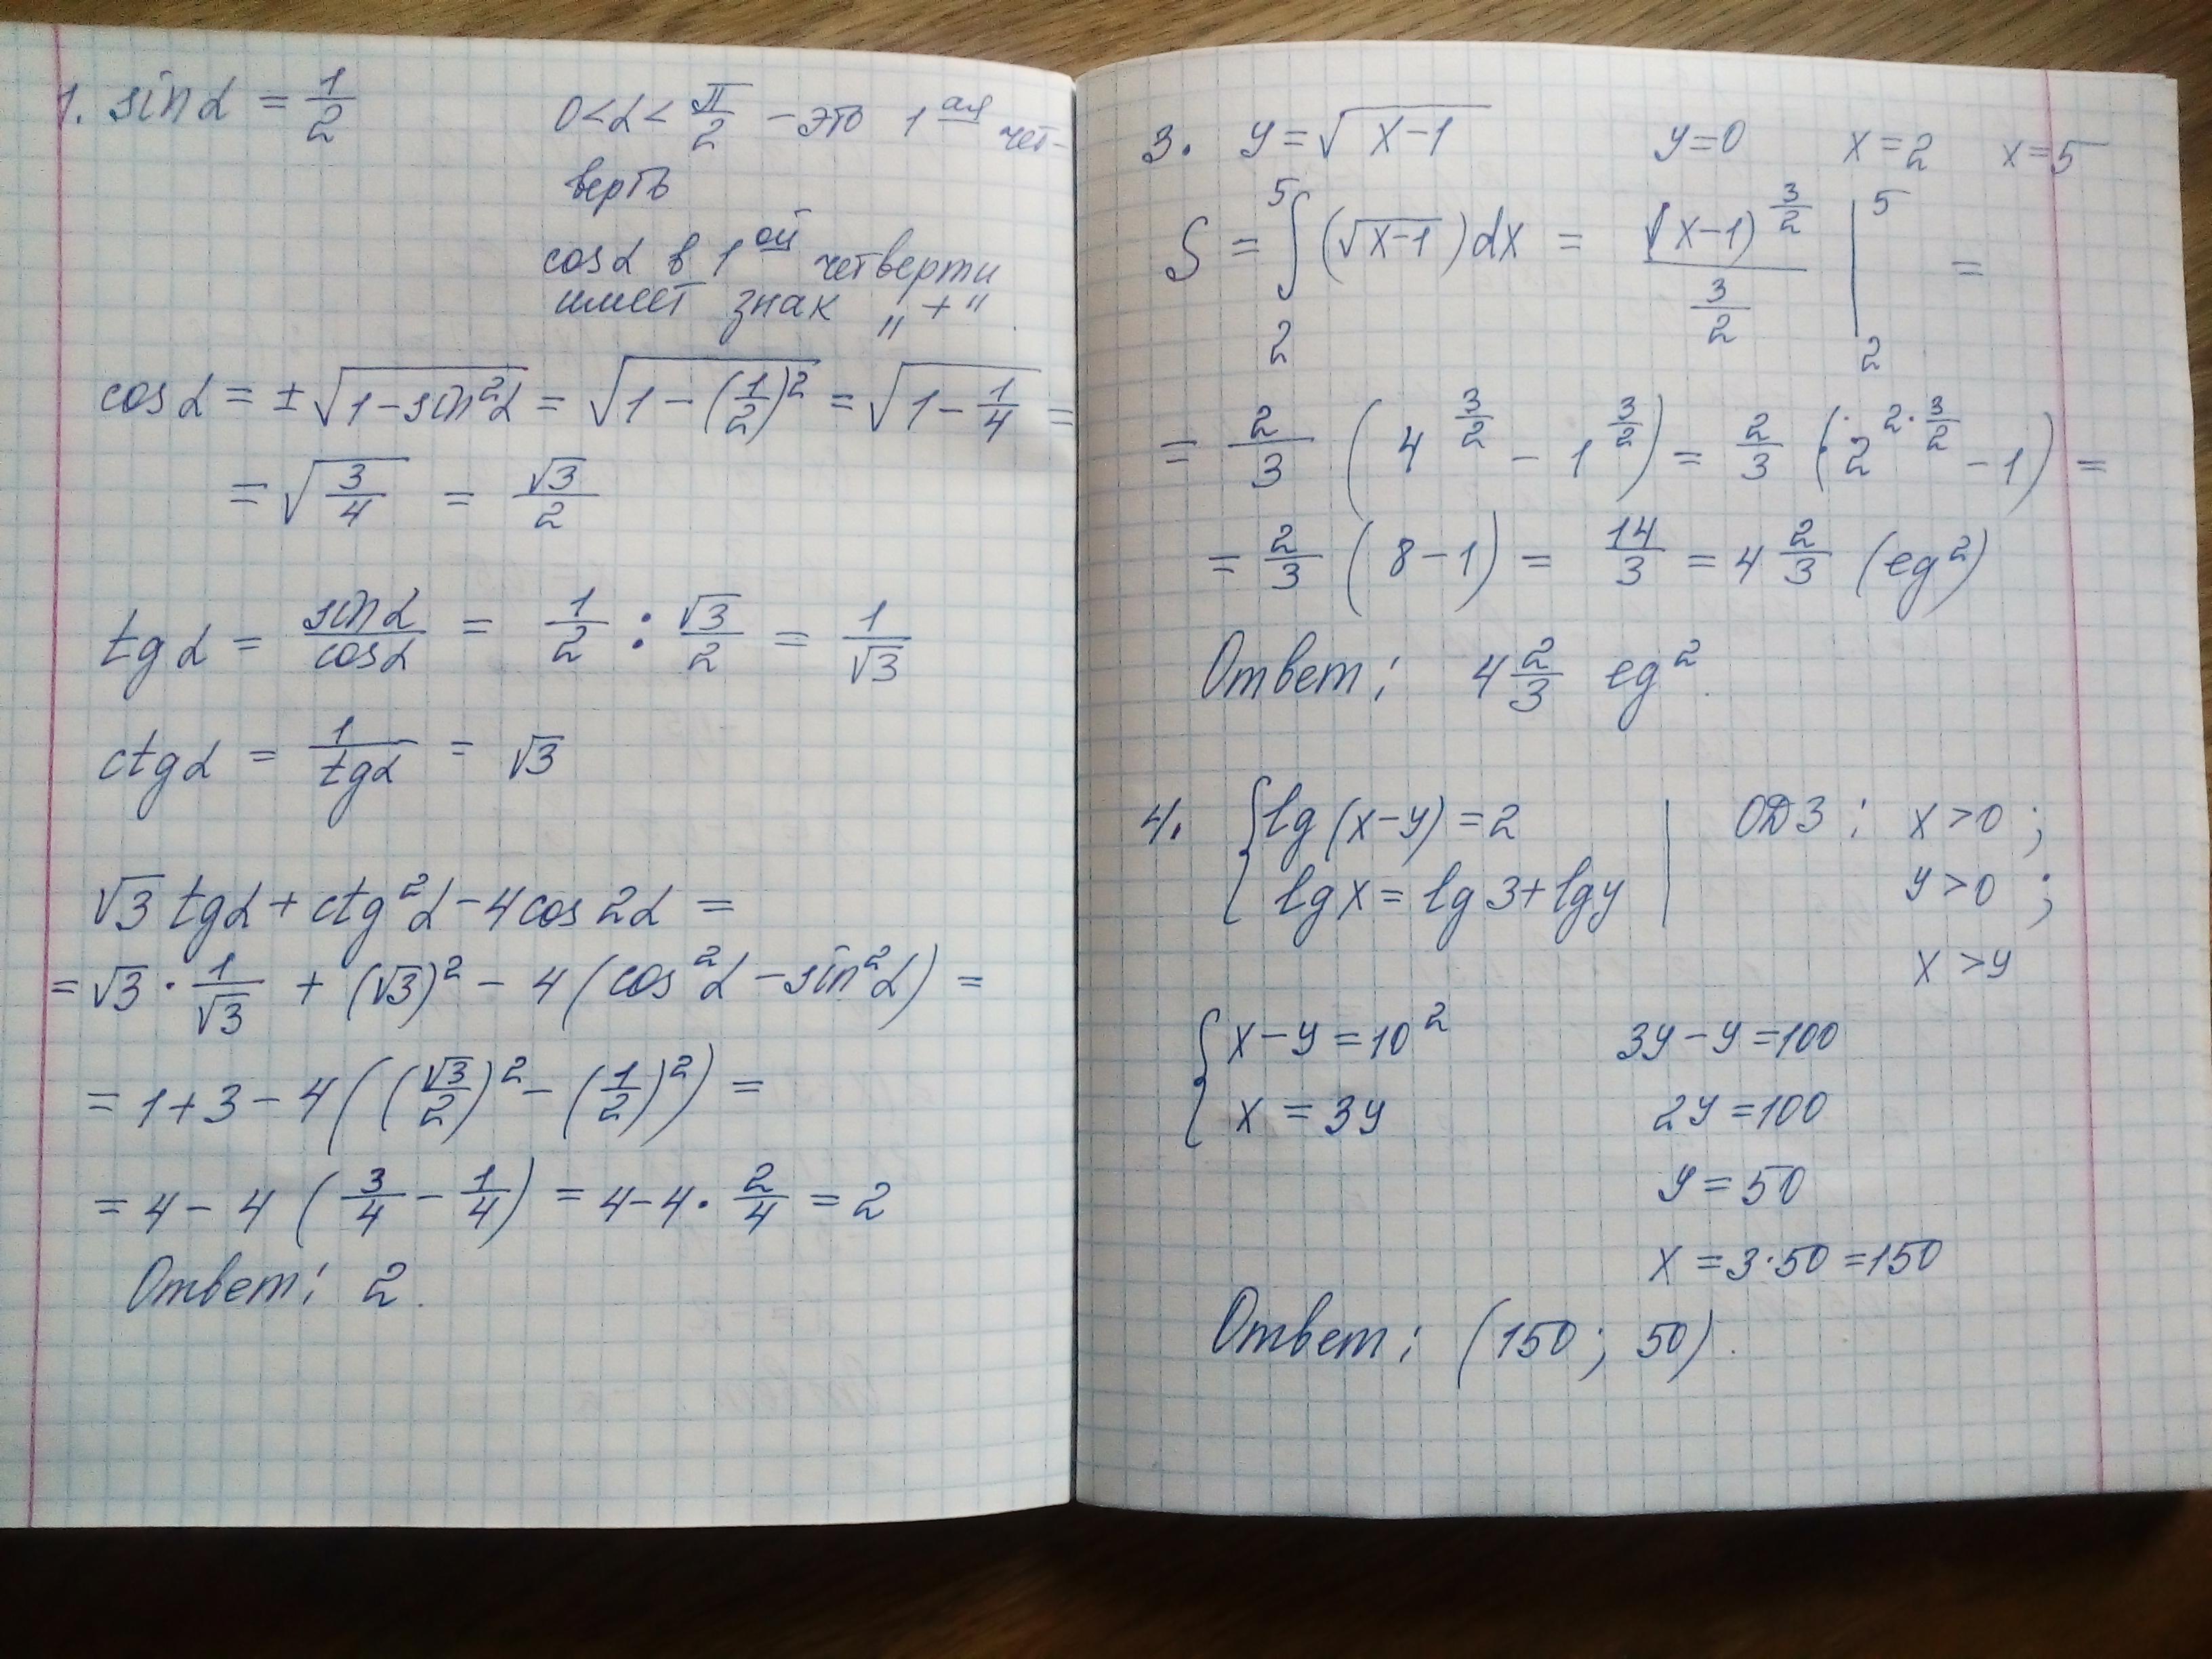 1. sin α = 1/2    0 < α < π/2 – это 1ая чет-
верть
cos α в 1ой четверти
имеет знак „+“
cos α = ±√(1–sin²α) = √(1–(1/2)²) = √(1–1/4) =
= √(3/4) = √3/2
tg α = sin α/cos α = 1/2 : √3/2 = 1/√3
ctg α = 1/tg α = √3
√3 tg α + ctg²α – 4cos 2α =
= √3 · 1/√3 + (√3)² – 4(cos²α – sin²α) =
= 1+3–4((√3/2)² – (1/2)²) =
= 4 – 4(3/4 – 1/4) = 4–4· 2/4 = 2
Ответ: 2.
3. y = √(x–1)    y=0    x=2    x=5
S = ∫₂⁵ (√(x–1))dx = (x–1)^(3/2) / (3/2) |₂⁵ =
= 2/3 (4^(3/2) – 1^(3/2)) = 2/3 (2^(2·3/2) – 1) =
= 2/3 (8–1) = 14/3 = 4 2/3 (ед²)
Ответ: 4 2/3 ед².
4. { lg(x–y) = 2 | ОДЗ: x>0;
lgx = lg3+lgy | y>0;
x>y
{ x–y=10²    3y–y=100
x = 3y    2y=100
y=50
x=3·50=150
Ответ: (150; 50).